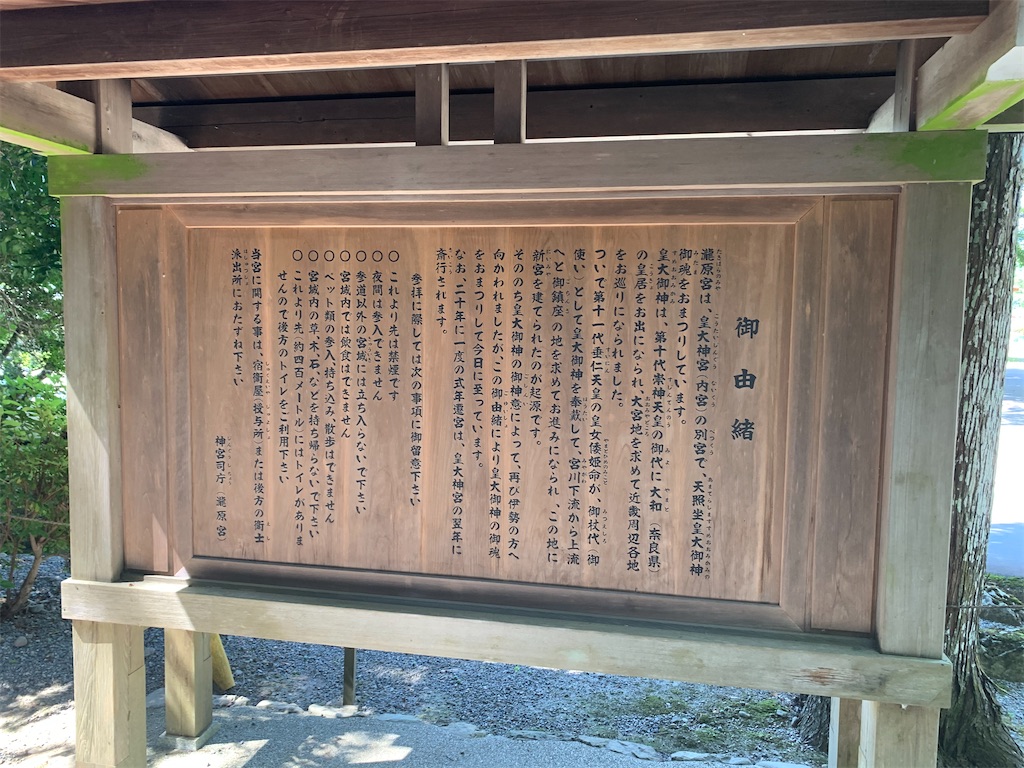 御由緒
瀧原宮は、皇大神宮(内宮)の別宮で、天照坐皇大御神
御魂をおまつりしています。
皇大御神は、第十代崇神天皇の御代に大和(奈良県)
の皇居をお出になられ大宮地を求めて近畿周辺各地
をお巡りになられました。
ついで第十一代垂仁天皇の皇女倭姫命が、御杖代(御
使い)として皇大御神を奉戴して、宮川下流から上流
へと御鎮座の地を求めてお進みになられ、この地に
新宮を建てられたのが起源です。
そののち皇大御神の御神意によって、再び伊勢の方へ
向かわれましたが、この御由緒により皇大御神の御魂
をおまつりして今日に至っています。
なお、二十年に一度の式年遷宮は、皇大神宮の翌年に
斎行されます。
参拝に際しては次の事項に御留意下さい
○これより先は禁煙です
○夜間は参入できません
○参道以外の宮域には立ち入らないで下さい
○宮域内では飲食はできません
○ペット類の参入、持ち込み、散歩はできません
○宮域内の草、木、石、などを持ち帰らないで下さい
○これより先、約四百メートルにはトイレがありま
せんので後方のトイレをご利用下さい
当宮に関する事は、宿衛屋(授与所)または後方の衛士
派出所におたずね下さい
神宮司庁(瀧原宮)